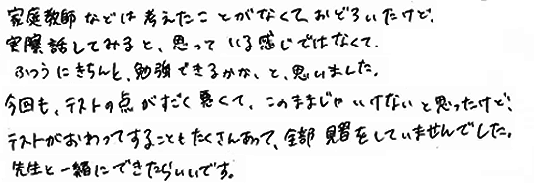 家庭教師などは考えたことがなくて、おどろいたけど、
実際話してみると、思っている感じではなくて、
ふつうにきちんと、勉強できるかな、と、思いました。
今回も、テストの点がすごく悪くて、このままじゃいけないと思ったけど、
テストがおわってすることもたくさんあって、全部見習をしていませんでした。
先生と一緒にできたらいいです。